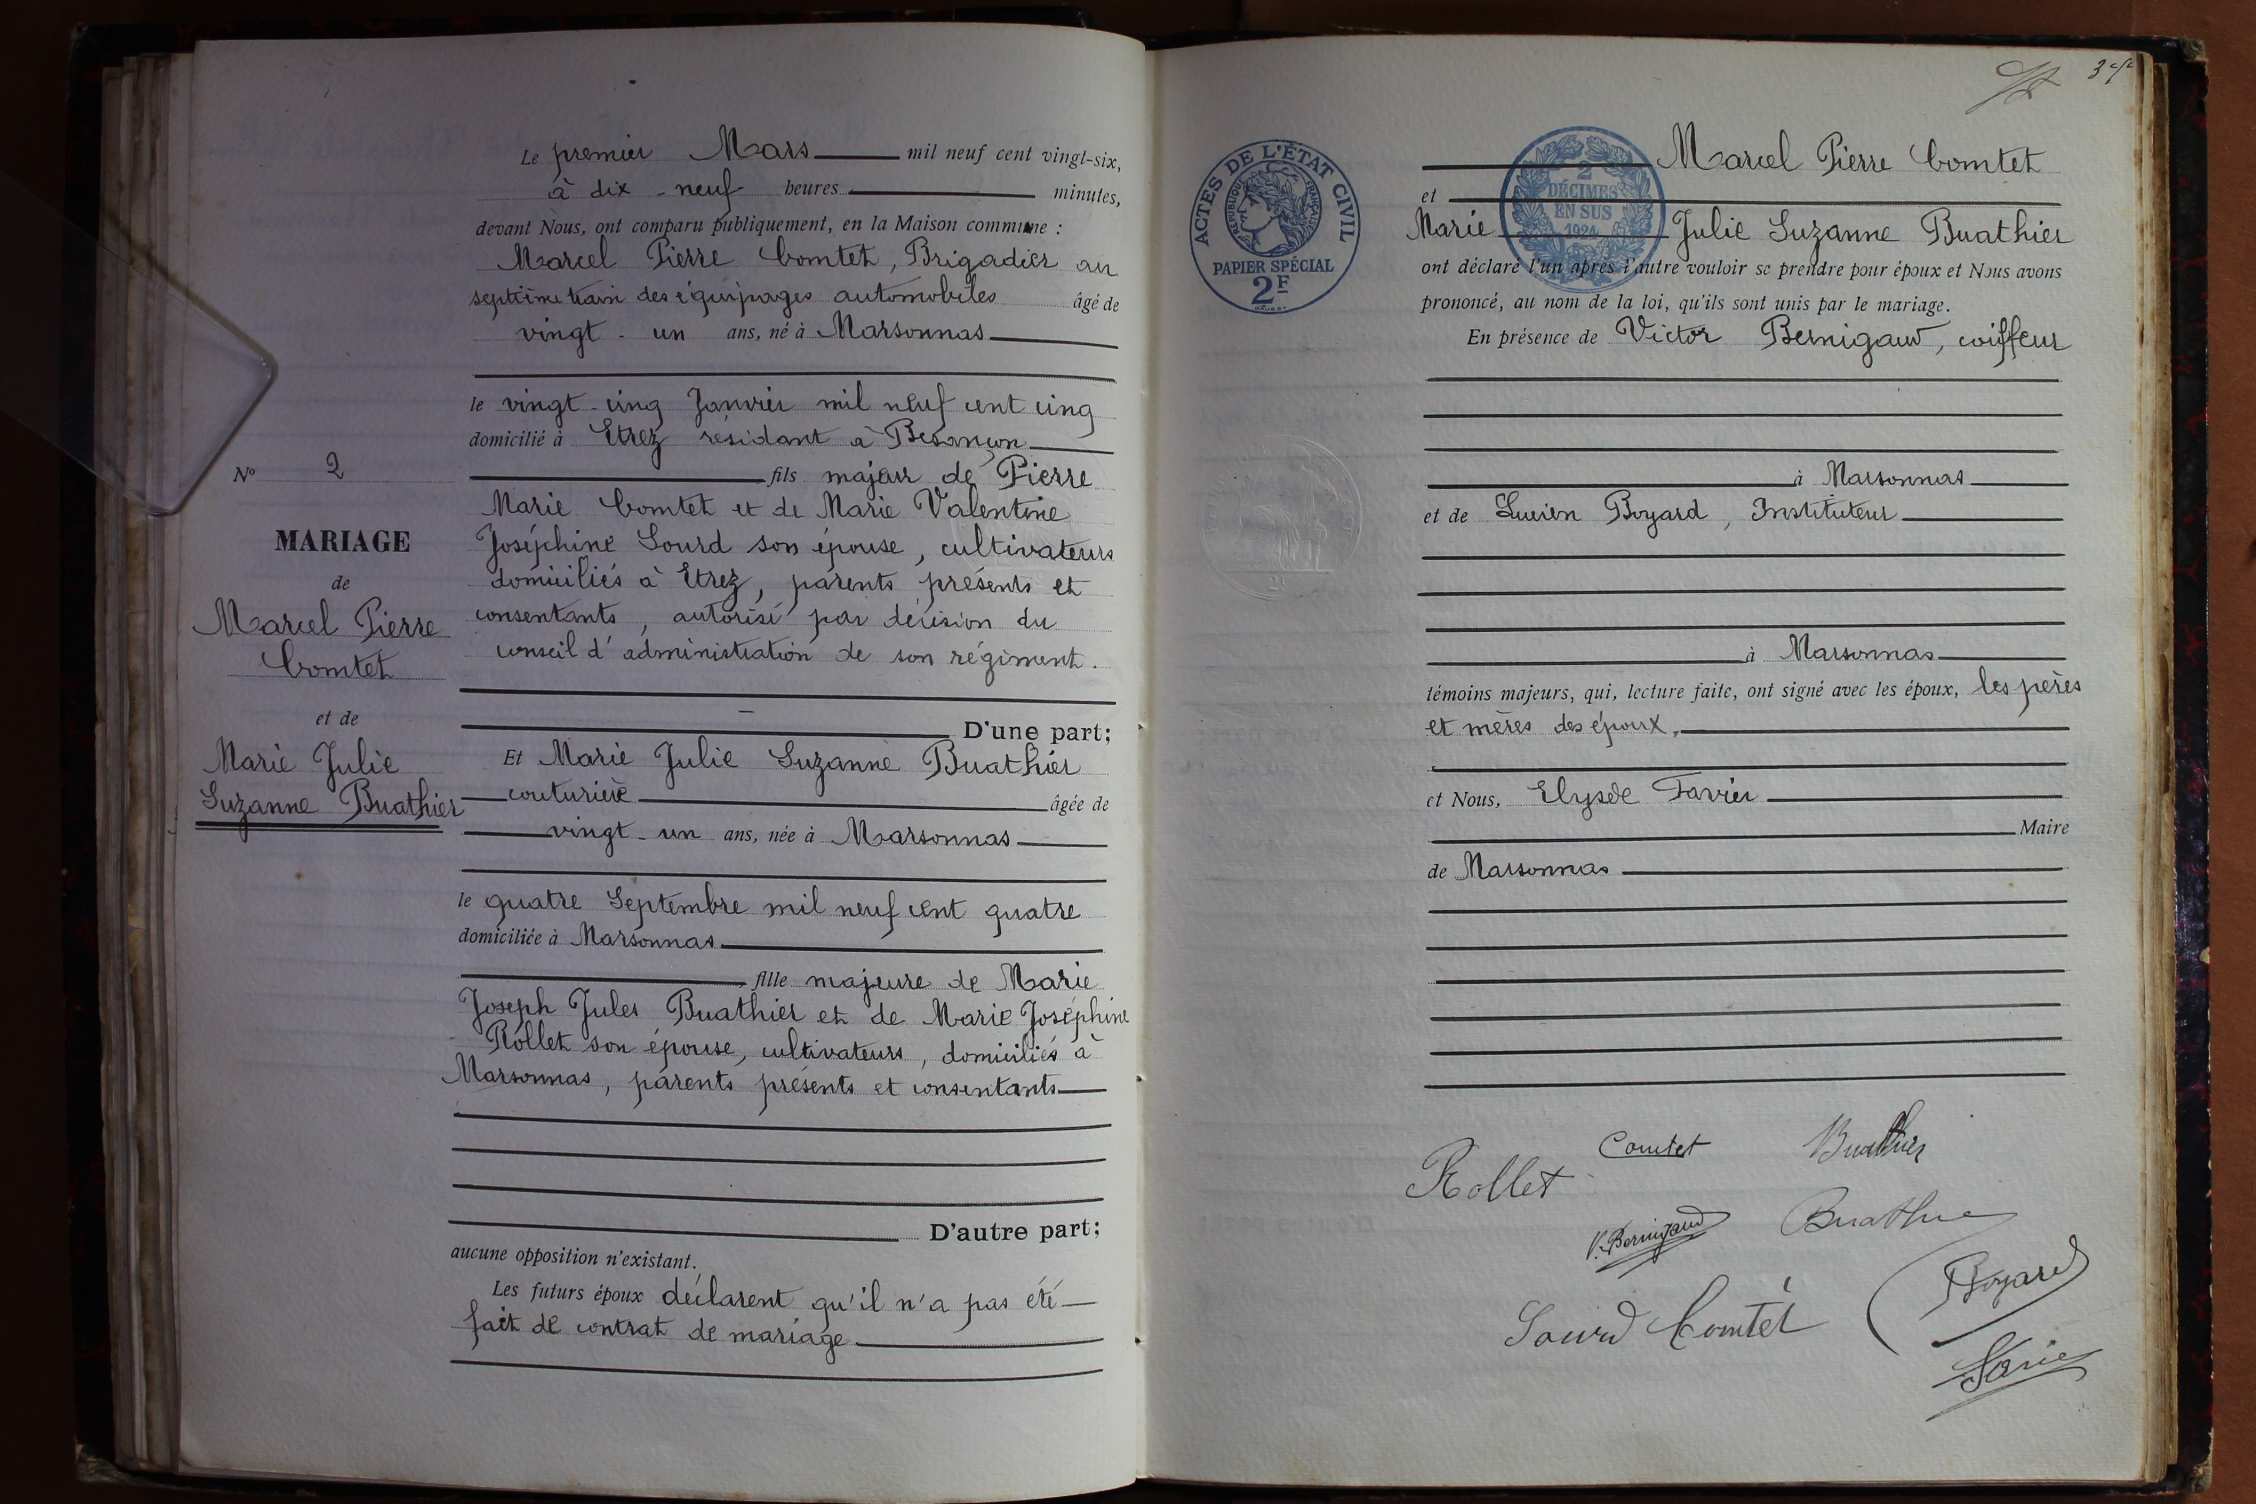 Le premier Mars mil neuf cent vingt-six,
à dix-neuf heures minutes,
devant Nous, ont comparu publiquement, en la Maison commune :
Marcel Pierre Comtet, Brigadier au
septième train des équipages automobiles âgé de
vingt-un ans, né à Marsonnas
le vingt-cinq Janvier mil neuf cent cinq
domicilié à Etrez résidant à Besançon
fils majeur de Pierre
Marie Comtet et de Marie Valentine
Joséphine Sourd son épouse, cultivateurs
domiciliés à Etrez, parents présents et
consentants, autorisé par décision du
conseil d'administration de son régiment.
D'une part;
Et Marie Julie Suzanne Buathier
couturière âgée de
vingt-un ans, née à Marsonnas
le quatre Septembre mil neuf cent quatre
domiciliée à Marsonnas
fille majeure de Marie
Joseph Jules Buathier et de Marie Joséphine
Rollet son épouse, cultivateurs, domiciliés à
Marsonnas, parents présents et consentants
D'autre part;
aucune opposition n'existant.
Les futurs époux déclarent qu'il n'a pas été
fait de contrat de mariage
N° 2
MARIAGE
de
Marcel Pierre
Comtet
et de
Marie Julie
Suzanne Buathier
ACTES DE L'ÉTAT CIVIL
RÉPUBLIQUE FRANÇAISE
PAPIER SPÉCIAL
2F
2
DÉCIMES
EN SUS
1924
Marcel Pierre Comtet
et
Marie Julie Suzanne Buathier
ont déclaré l'un après l'autre vouloir se prendre pour époux et Nous avons
prononcé, au nom de la loi, qu'ils sont unis par le mariage.
En présence de Victor Bernigaud, coiffeur
à Marsonnas
et de Lucien Boyard, Instituteur
à Marsonnas
témoins majeurs, qui, lecture faite, ont signé avec les époux, les pères
et mères des époux,
et Nous, Elysée Favier
Maire
de Marsonnas
Comtet Buathier
Rollet
V. Bernigaud Buathier
Boyard
Sourd Comtet
Favier